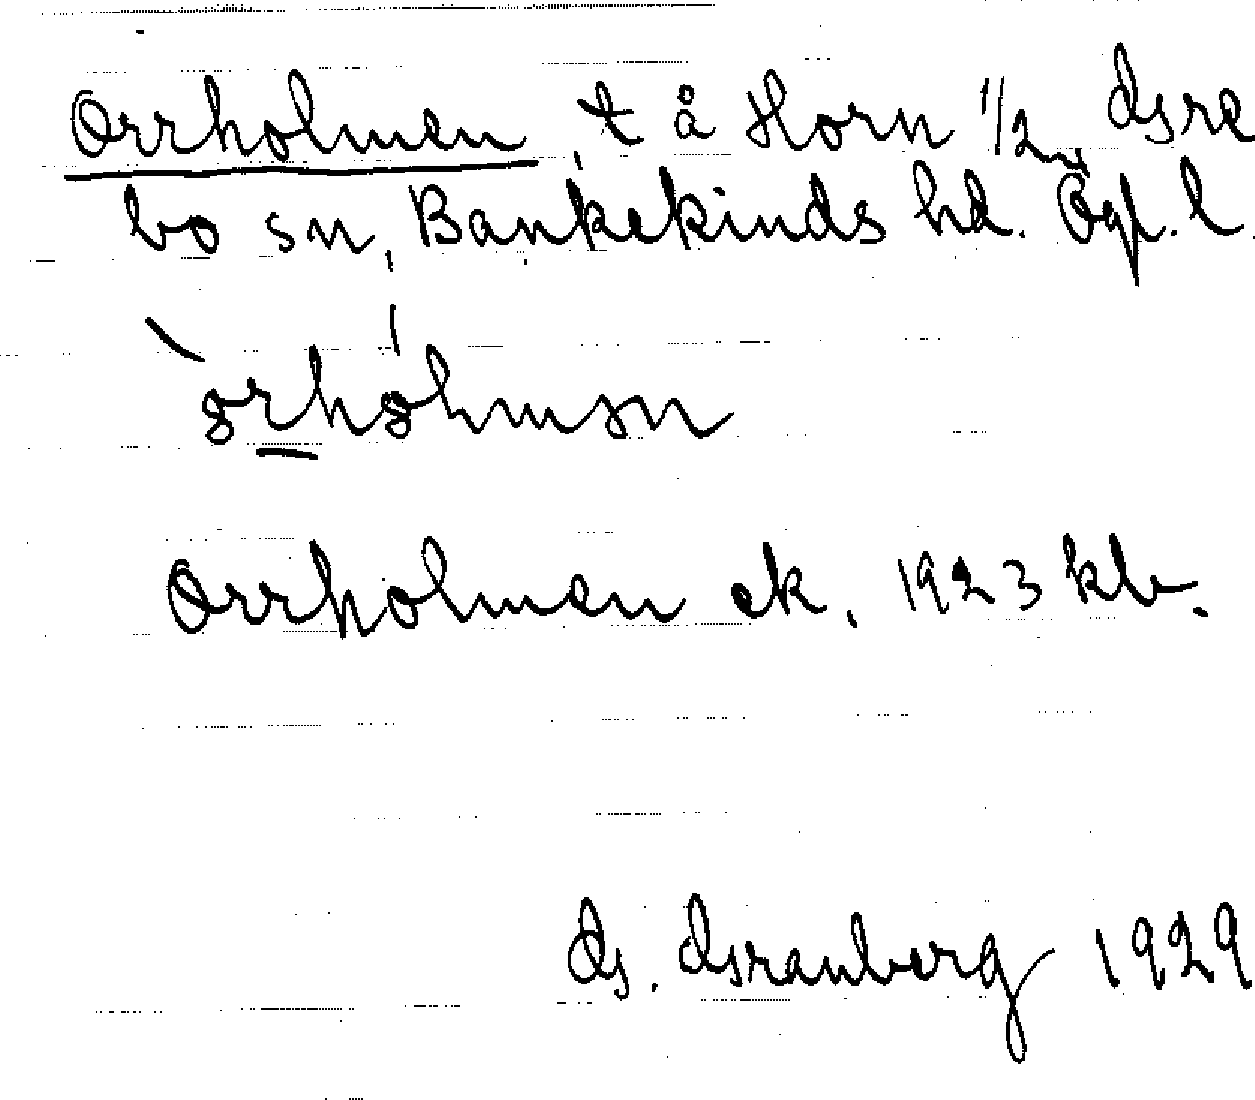 Orrholmen, t å Horn 1/2 mt Gre
bo sn, Bankekinds hd. Ög. l.
òrhólmən
Orrholmen ek. 1923 kb.
G. Granberg 1929